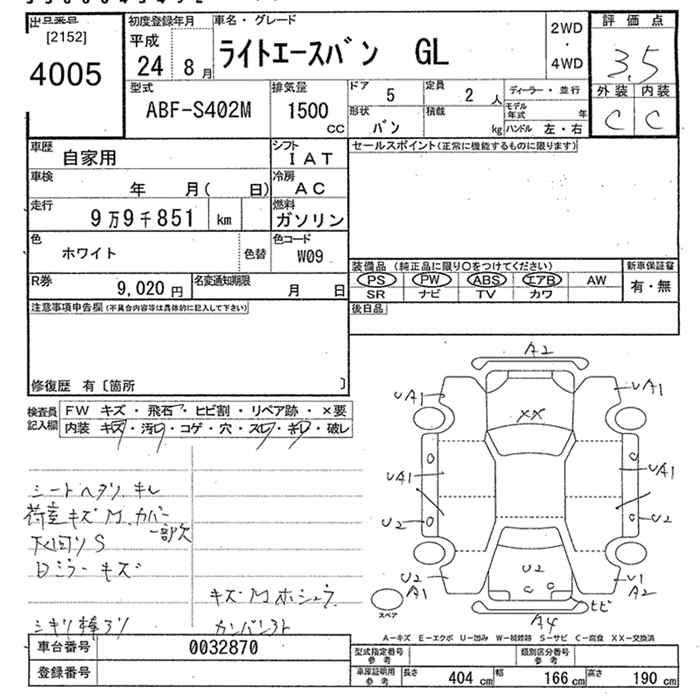 出品番号
[2152]
4005
初度登録年月
平成
24 8月
車名・グレード
ライトエースバン GL
2WD
・
4WD
評価点
3.5
外装 内装
C C
型式
ABF-S402M
排気量
1500
CC
ドア
5
定員
2 人
ディーラー・並行
形状
バン
積載
kg
モデル年式 年
ハンドル 左・右
車歴
自家用
シフト
IAT
車検
年 月( 日)
冷房
AC
走行
9万9千851 km
燃料
ガソリン
色
ホワイト
色替
色コード
W09
R券
9,020 円
名変通知期限
月 日
セールスポイント(正常に機能するものに限ります)
装備品 (純正品に限り○をつけてください)
PS PW ABS エアB AW
SR ナビ TV カワ
新車保証書
有・無
後日品
注意事項申告欄(不具合内容等は具体的に記入して下さい)
修復歴 有〔箇所 〕
検査員記入欄
FW キズ・飛石・ヒビ割・リペア跡・×要
内装 キズ・汚レ・コゲ・穴・スレ・キレ・破レ
シートヘタリ、キレ
荷室キズM、カバー
一部欠
下回りS
Dミラーキズ
キズM ホシュウ
A2
UA1 UA1
XX
UA1 UA1
U2 U2
U2 U1
A1 A2
U2
C C
ヒビ
A4
スペア
A－キズ E－エクボ U－凹み W－補修跡 S－サビ C－腐食 XX－交換済
車台番号
0032870
登録番号
型式指定番号
参考
類別区分番号
参考
車庫証明用
参考
長さ 404 cm 幅 166 cm 高さ 190 cm